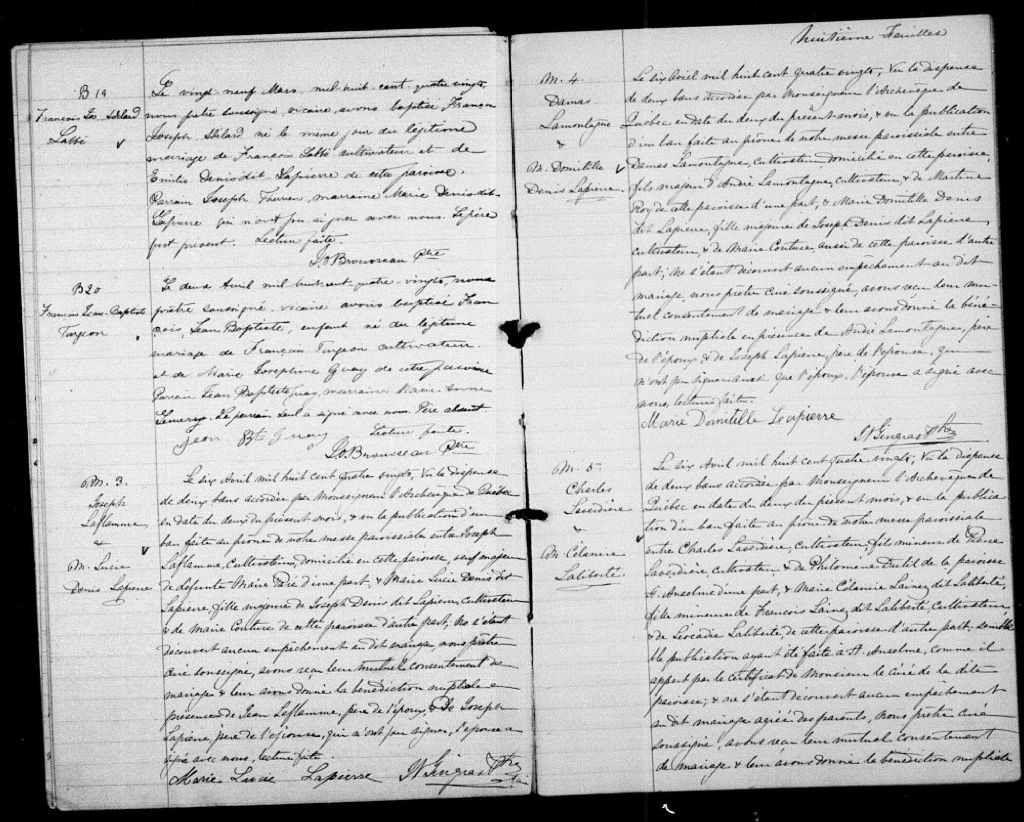 B 19
François Jos Adélard
Labbé
Le vingt-neuf Mars, mil-huit-cent-quatre-vingt,
nous prêtre soussigné, vicaire, avons baptisé François
Joseph Adélard né le même jour du légitime
mariage de François Labbé cultivateur et de
Emilie Denis dit Lapierre de cette paroisse.
Parrain Joseph Therrien, marraine Marie Denis dit
Lapierre qui n'ont pu signer avec nous. Le père
fut présent. Lecture faite.
J.O. Brousseau Ptre
B 20
François Jean-Baptiste
Turgeon
Le deux Avril mil huit cent quatre-vingts, nous
prêtre soussigné, vicaire avons baptisé Fran
çois, Jean Baptiste, enfant né du légitime
mariage de François Turgeon cultivateur
et de Marie Josephine Guay de cette paroisse
Parrain Jean Baptiste Guay, marraine Marie
Le parrain seul a signé avec nous. Père absent
Jean Bte Guay Lecture faite.
J.O. Brousseau Ptre
M. 3.
Joseph
Laflamme
&
M. Lucie
Denis Lapierre
Le six Avril mil huit cent quatre vingts, Vu la dispense
de deux bans accordée par Monseigneur l'Archevêque de Québec
en date du deux du présent mois, & vu la publication d'un
ban faite au prône de notre messe paroissiale entre Joseph
Laflamme, Cultivateur, domicilié en cette paroisse, veuf majeur
de défunte Marie d'une part, & Marie Lucie Denis dit
Lapierre, fille majeure de Joseph Denis dit Lapierre, cultivateur
& de Marie Couture de cette paroisse d'autre part, Ne s'étant
découvert aucun empêchement au dit mariage, nous prêtre
curé soussigné, avons reçu leur mutuel consentement de
mariage & leur avons donné la bénédiction nuptiale en
présence de Jean Laflamme, père de l'époux, & de Joseph
Lapierre, père de l'épouse, qui n'ont pu signer, l'épouse a
signé avec nous, lecture faite
Marie Lucie Lapierre N Gingras Ptre
Huitième Feuillet
M. 4.
Damas
Lamontagne
&
M. Domitille
Denis Lapierre.
Le six Avril mil huit cent quatre vingts, Vu la dispense
de deux bans accordée par Monseigneur l'Archevêque de
Québec en date du deux du présent mois, & vu la publication
d'un ban faite au prône de notre messe paroissiale entre
Damas Lamontagne, cultivateur, domicilié en cette paroisse,
fils majeur d'André Lamontagne, cultivateur, & de Martine
Roy de cette paroisse d'une part, & Marie Domitille Denis
dit Lapierre, fille majeure de Joseph Denis dit Lapierre
cultivateur, & de Marie Couture, aussi de cette paroisse d'autre
part; Ne s'étant découvert aucun empêchement au dit
mariage, nous prêtre Curé soussigné, avons reçu leur mu-
tuel consentement de mariage & leur avons donné la béné-
diction nuptiale en présence de André Lamontagne, père
de l'époux & de Joseph Lapierre, père de l'épouse, qui
n'ont pu signer ainsi que l'époux, l'épouse a signé avec
nous, lecture faite.
Marie Domitille Lapierre
N Gingras Ptre
M. 5.
Charles
&
M. Célanire
Laliberté.
Le six Avril mil huit cent quatre vingts, Vu la dispense
de deux bans accordée par Monseigneur l'Archevêque de
Québec en date du deux du présent mois, & vu la publica
tion d'un ban faite au prône de notre messe paroissiale
entre Charles cultivateur, fils mineur de Pierre
cultivateur, & de Philomène de la paroisse
St. Anselme d'une part, & Marie Célanire Lainez dit Laliberté,
fille mineure de François Lainez dit Laliberté Cultivateur,
& de Léocadie Laliberté, de cette paroisse d'autre part; sembla
ble publication ayant été faite à St. Anselme, comme il
appert par le certificat de Monsieur le curé de la dite
paroisse; & ne s'étant découvert aucun empêchement
au dit mariage agréé des parents, Nous prêtre curé
soussigné, avons reçu leur mutuel consentement
de mariage & leur avons donné la bénédiction nuptiale